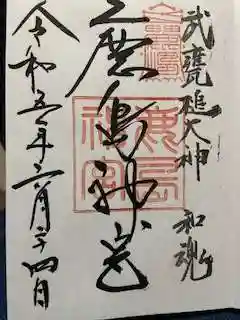 武甕槌大神 和魂
鹿島神宮
令和五年六月二十四日
鹿島
神宮